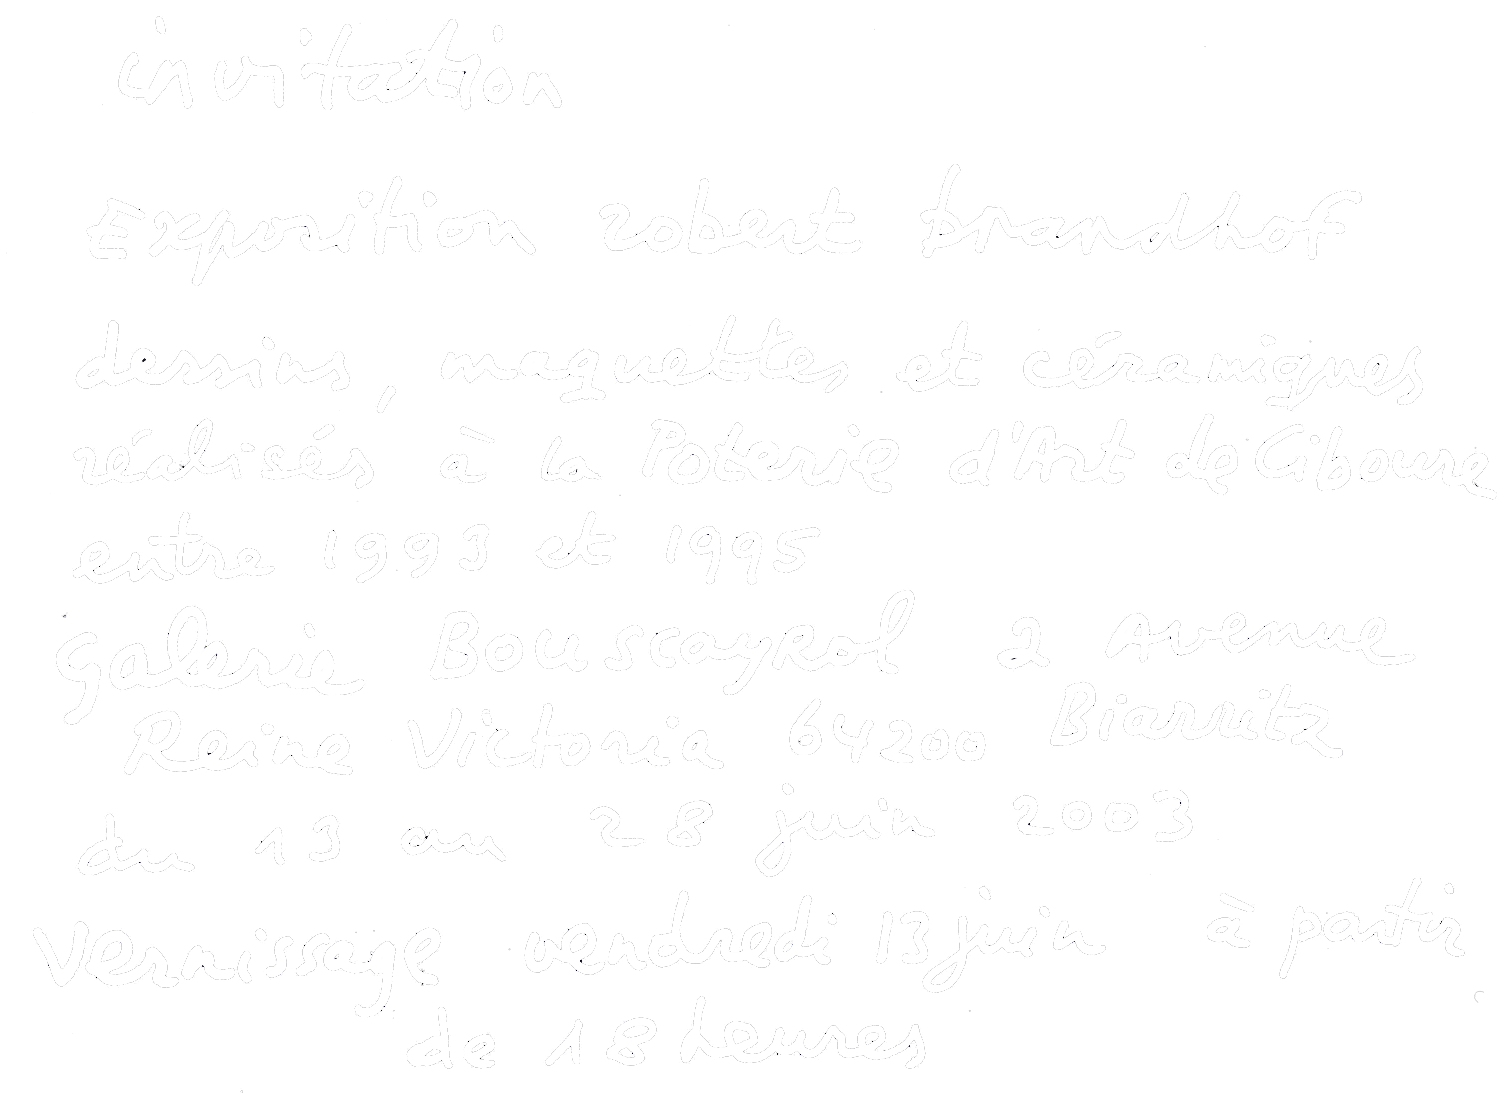 invitation
Exposition robert brandhof
dessins, maquettes et céramiques
réalisés à la Poterie d'Art de Ciboure
entre 1993 et 1995
Galerie Bouscayrol 2 Avenue
Reine Victoria 64200 Biarritz
du 13 au 28 juin 2003
Vernissage vendredi 13 juin à partir
de 18 heures